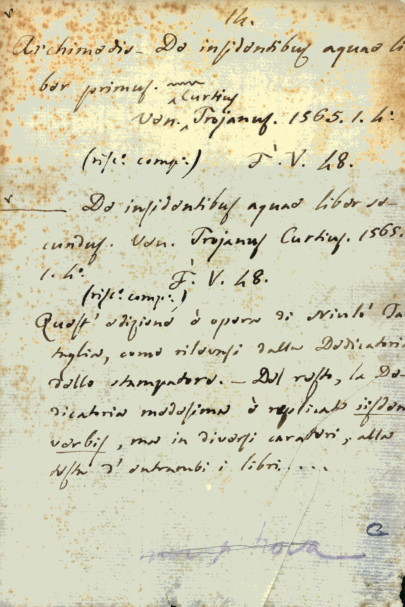 14.
Archimedis - De insidentibus aquae li
ber primus.
Curtius
Ven. Trojanus. 1565. 1. 4°
(risc.° comp.°) F. V. 48.
De insidentibus aquae liber se-
cundus. Ven. Trojanus Curtius. 1565.
1. 4°. F. V. 48.
(risc.° comp.°)
Quest' edizione è opera di Nicolò Ta
taglia, come rilevasi dalla Dedicatoria
dello stampatore. - Del resto, la De
dicatoria medesima è replicata iisdem
verbis, ma in diversi caratteri, alla
testa d' entrambi i libri....